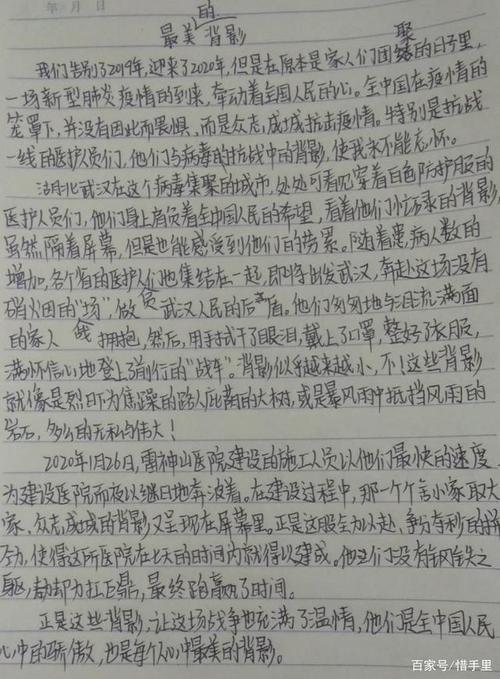 年 月 日
最美的背影
我们告别了2019年,迎来了2020年,但是在原本是家人们团聚的日子里,
一场新型肺炎疫情的到来,牵动着全国人民的心。全中国在疫情的
笼罩下,并没有因此而畏惧,而是众志成城抗击疫情。特别是抗战
一线的医护人员们,他们与病毒的抗战中的背影,使我永不能忘怀。
湖北武汉在这个病毒集聚的城市,处处可看见穿着白色防护服的
医护人员们,他们身上肩负着全中国人民的希望,看着他们忙碌的背影,
虽然隔着屏幕,但是也能感受到他们的劳累。随着患病人数的
增加,各个省的医护人们也集结在一起,即将出发武汉,奔赴这场没有
硝烟的"战场",做武汉人民的后盾。他们匆匆地与泪流满面
的家人拥抱,然后,用手拭干了眼泪,戴上了口罩,整好了衣服,
满怀信心地登上了前行的"战车"。背影似乎越来越小,不!这些背影
就像是烈日下为焦躁的路人庇荫的大树,或是暴风雨中抵挡风雨的
岩石,多么的无私与伟大!
2020年1月26日,雷神山医院建设的施工人员以他们最快的速度
为建设医院而夜以继日地奔波着。在建设过程中,那一个个舍小家取大
家、众志成城的背影又呈现在屏幕里。正是这股全力以赴、争分夺秒的拼
劲,使得这所医院在 的时间内就得以建成。他们没有 之
躯,却却力扛巨鼎,最终跑赢了时间。
正是这些背影,让这场战争也充满了温情,他们是全中国人民
心中的骄傲,也是每个人心中最美的背影。
百家号/惜手里